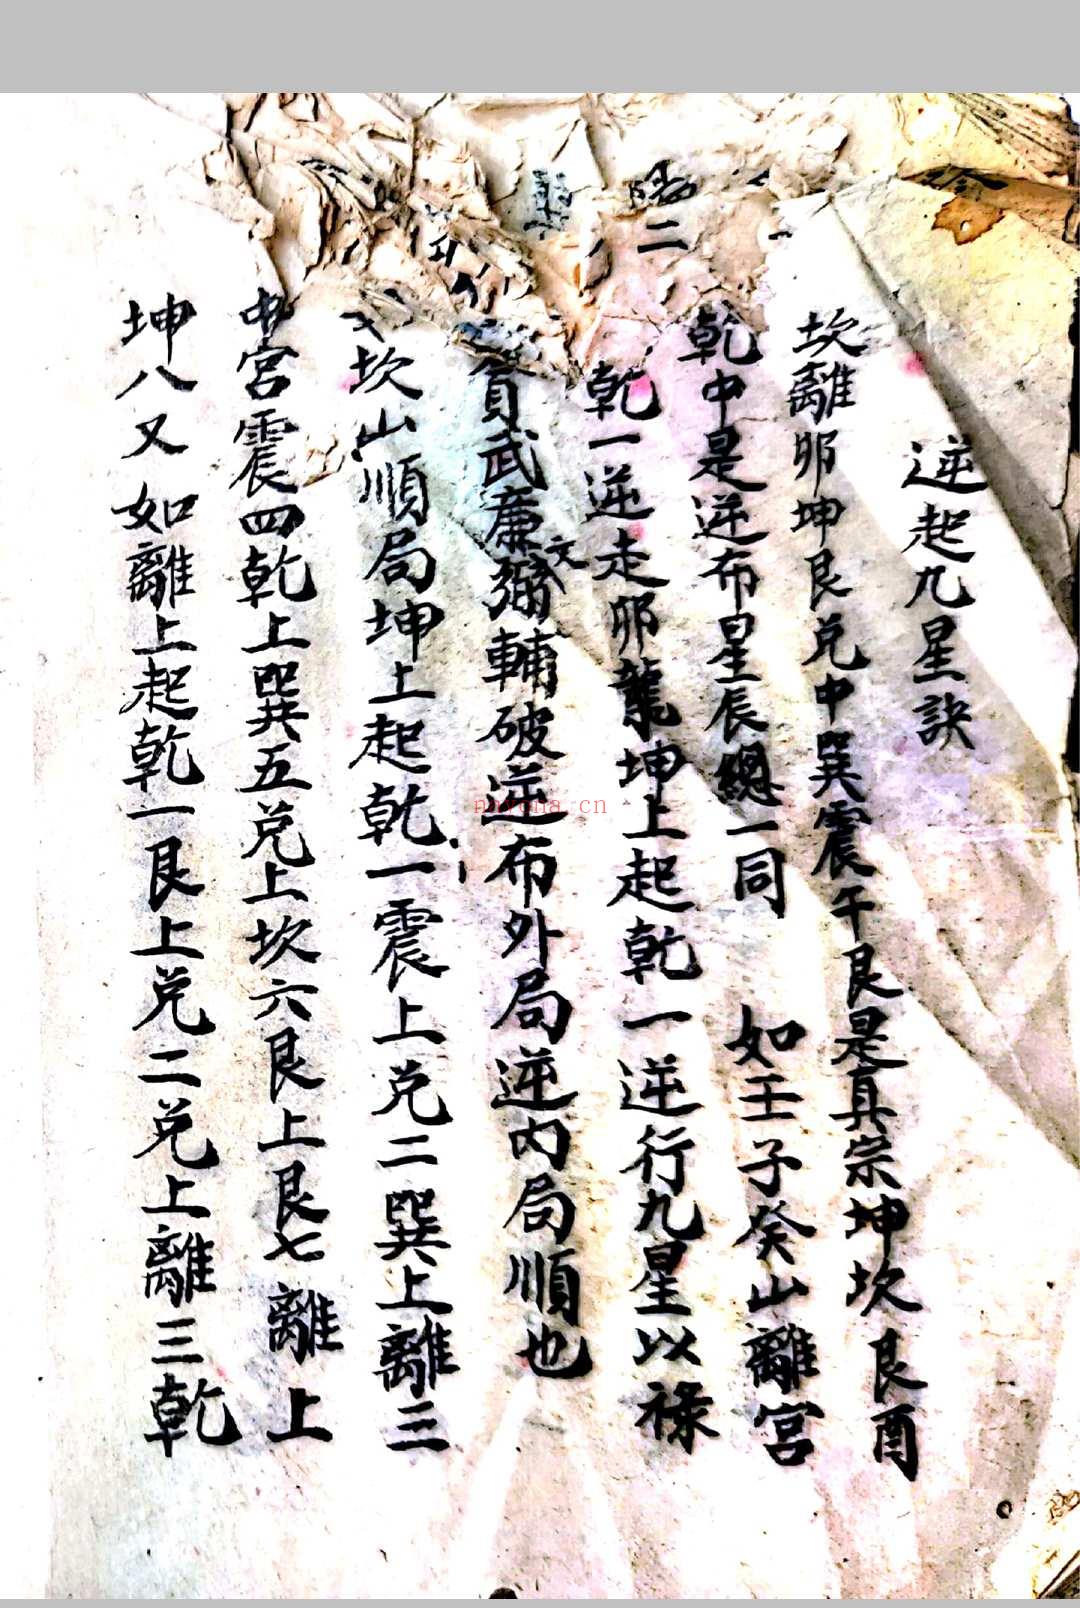 逆起九星訣
坎離卯坤艮兑中巽震午艮是真宗坤坎艮酉
乾中是逆布星辰總一同 如壬子癸山離宮
乾一逆走卯龍坤上起乾一逆行九星以祿
貪武廉文弼輔破逆布外局逆内局順也
坎山順局坤上起乾一震上兑二巽上離三
中宮震四乾上巽五兑上坎六艮上艮七離上
坤八又如離上起乾一艮上兑二兑上離三乾
二
nayona.cn